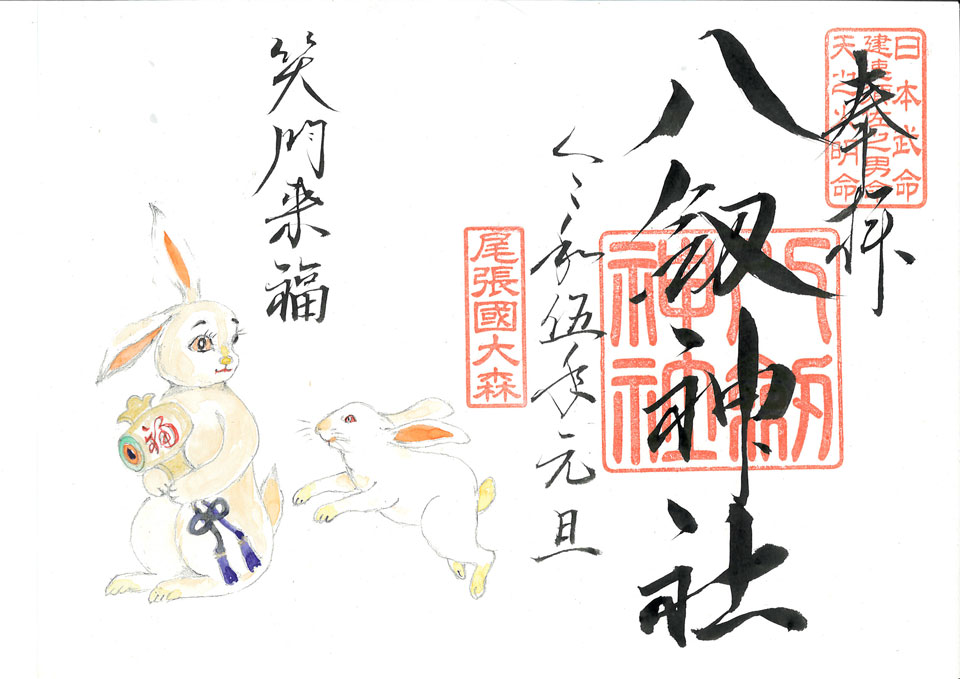 奉拝
日本武命
建速須佐之男命
天之火明命
八剱神社
八剱
神社
令和伍年元旦
尾張國大森
笑門来福
福